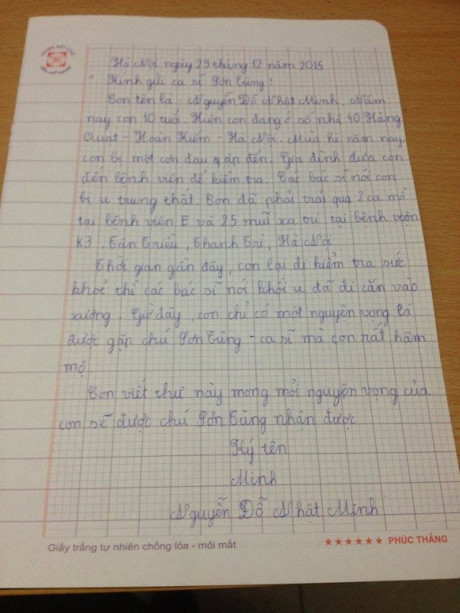 Hà Nội ngày 25 tháng 12 năm 2015
Kính gửi ca sĩ Sơn Tùng!
Con tên là Nguyễn Đỗ Nhật Minh. Năm
nay con 10 tuổi. Hiện con đang ở số nhà 40 Hàng
Quạt - Hoàn Kiếm - Hà Nội. Mùa hè năm nay,
con bị một cơn đau quặn đến. Gia đình đưa con
đến bệnh viện để kiểm tra. Các bác sĩ nói con
bị u trung thất. Con đã phải trải qua 2 ca mổ
tại bệnh viện E và 25 mũi xạ trị tại bệnh viện
K3, Tân Triều, Thanh Trì, Hà Nội
Thời gian gần đây, con lại đi kiểm tra sức
khoẻ thì các bác sĩ nói khối u đã di căn vào
xương. Giờ đây, con chỉ có một nguyện vọng là
được gặp chú Sơn Tùng - ca sĩ mà con rất hâm
mộ.
Con viết thư này mong mỏi nguyện vọng của
con sẽ được chú Sơn Tùng nhận được
Ký tên
Minh
Nguyễn Đỗ Nhật Minh
Giấy trắng tự nhiên chống lóa - mỏi mắt
★★★★★★ PHÚC THẮNG